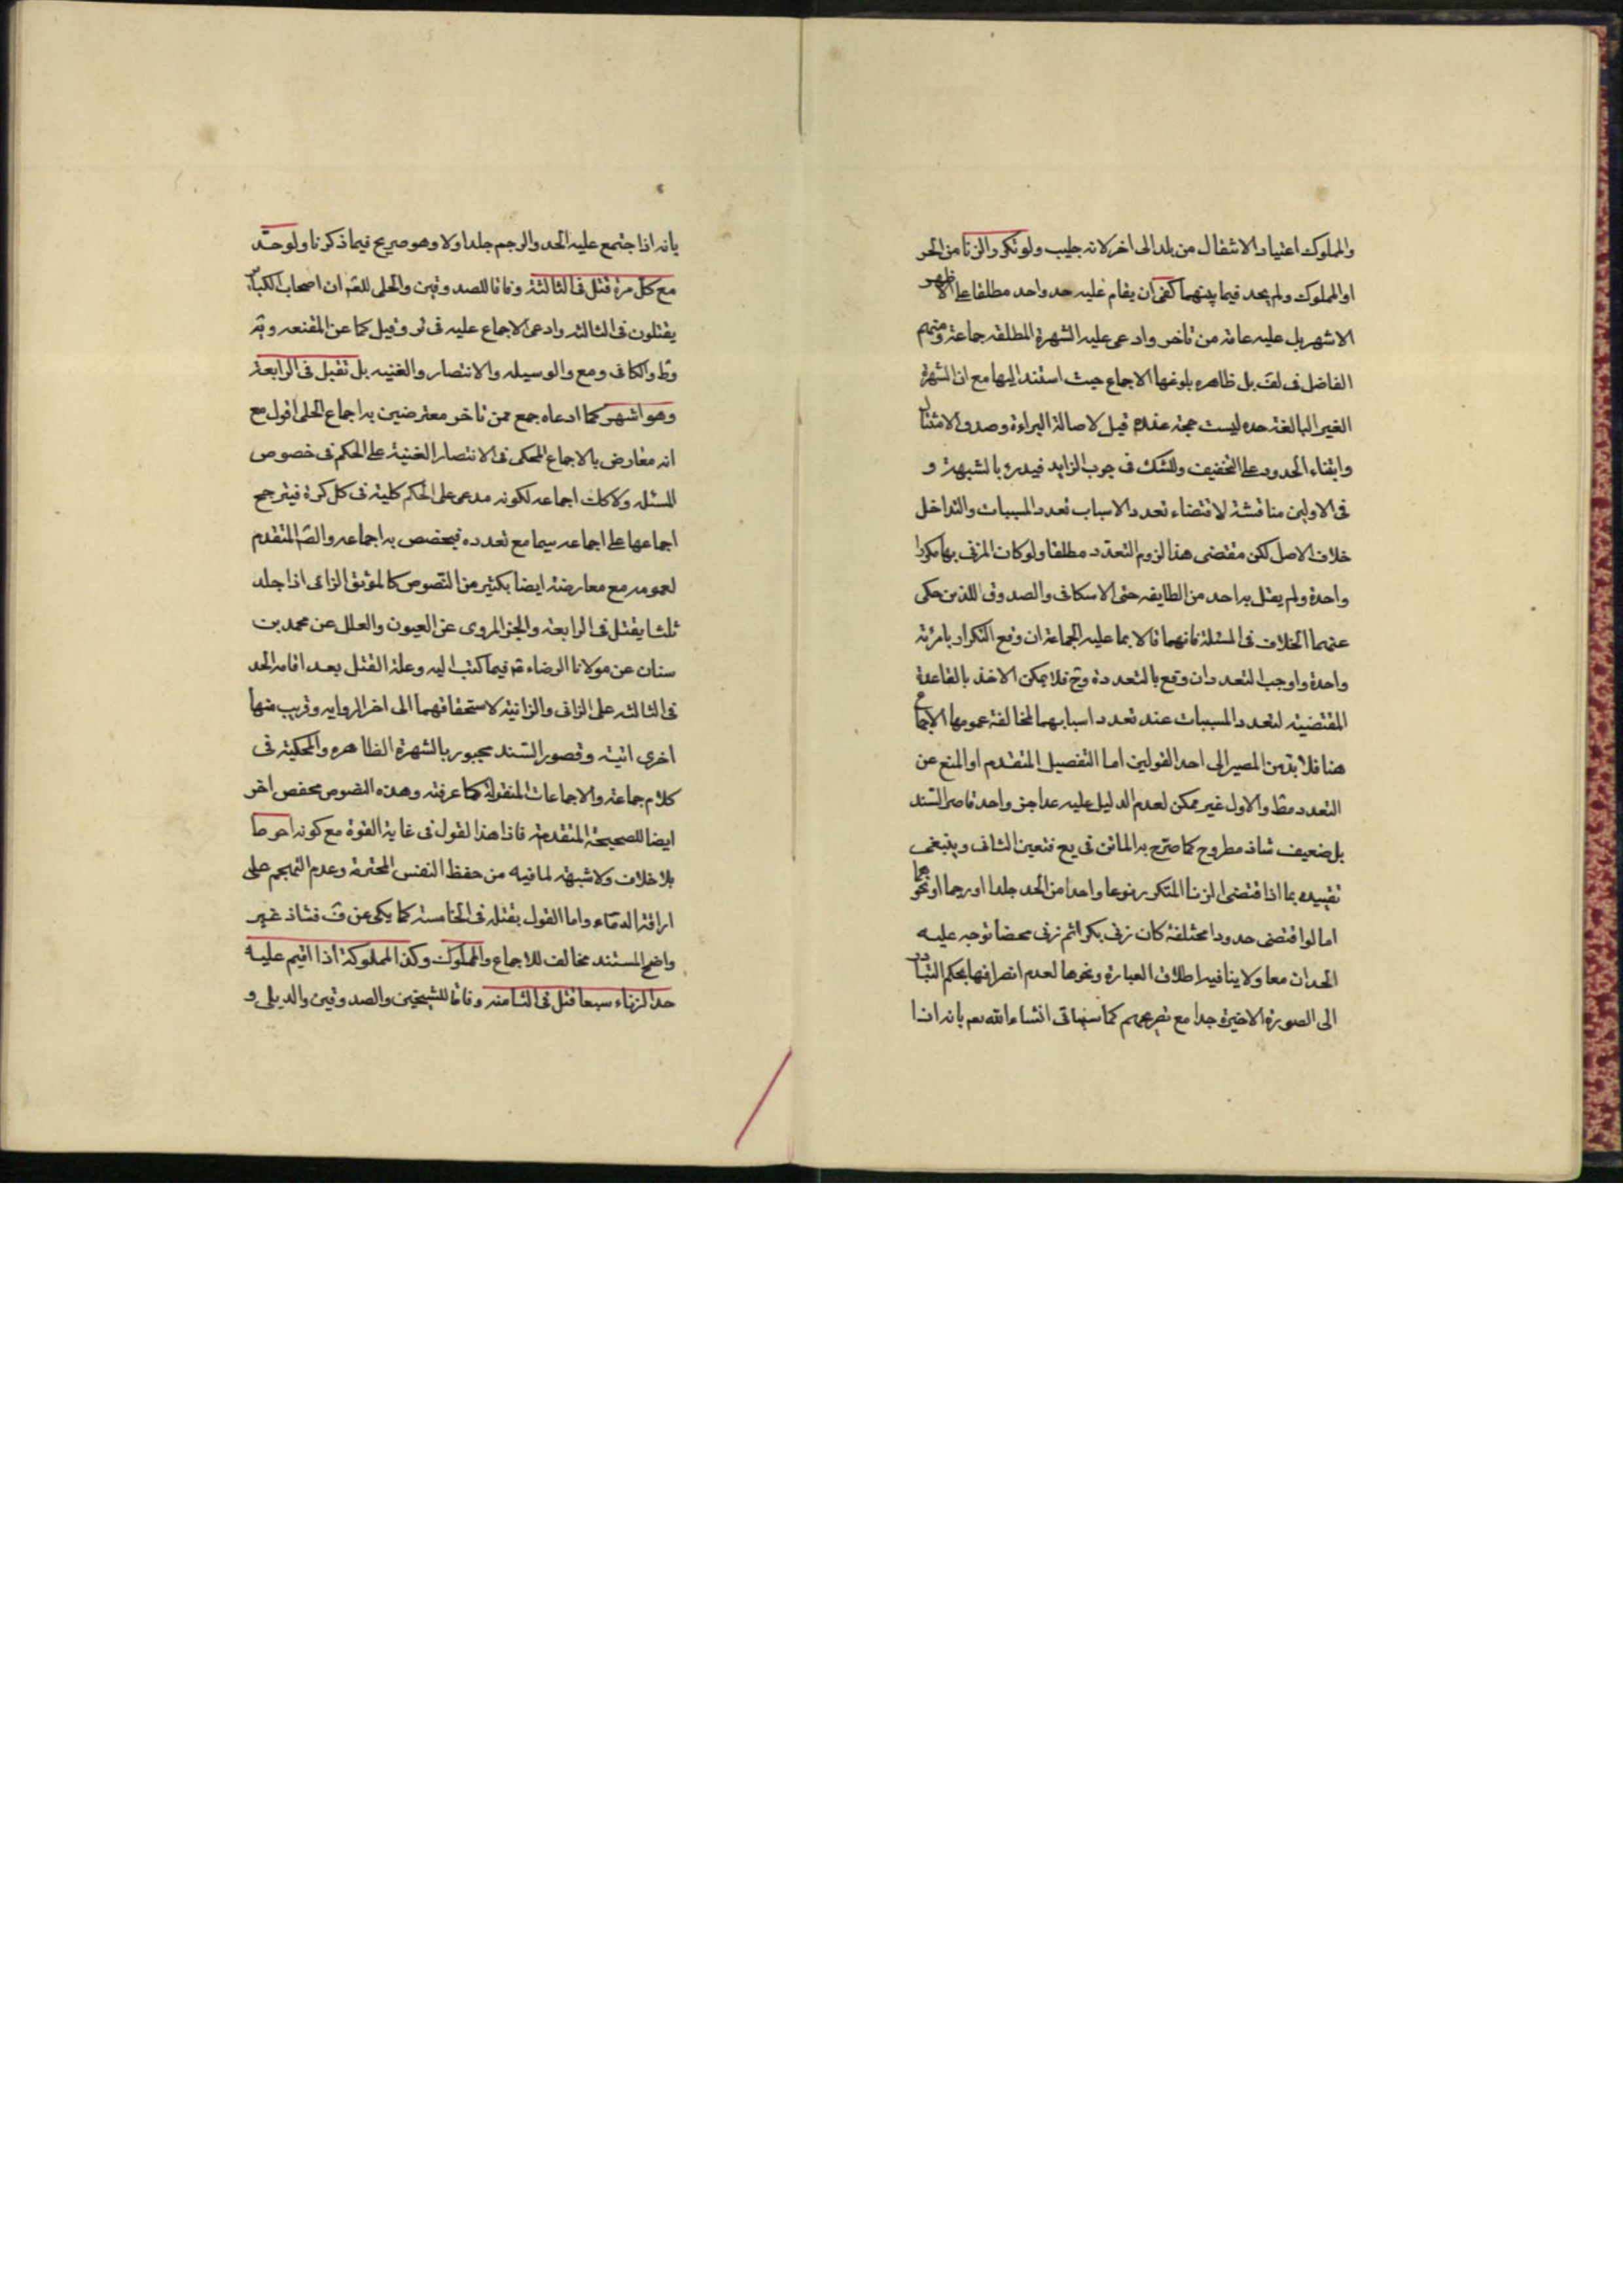 والمملوك اعتياد الانتقال من بلد الى اخر لانه جليب ولو تكرر الزنا من الحر
او المملوك ولم يحد فيما بينهما كفى ان يقام عليه حد واحد مطلقا على الاظهر
الاشهر بل عليه عامة من تاخر وادعى عليه الشهرة المطلقه جماعة ومنهم
الفاضل فى لف بل ظاهره بلوغها الاجماع حيث استند اليها مع ان الشهرة
الغير البالغة حده ليست حجة عنده قيل لاصالة البراءة وصدق الامتثال
وابتناء الحدود على التخفيف وللشك فى وجوب الزايد فيدرء بالشبهة و
فى الاولين مناقشة لاقتضاء تعدد الاسباب تعدد المسببات والتداخل
خلاف الاصل لكن مقتضى هذا لزوم التعدد مطلقا ولو كان المزنى بها مكررا
واحدة ولم يقل به احد من الطايفه حتى الاسكافى والصدوق اللذين حكى
عنهما الخلاف فى المسئلة فانهما قالا بما عليه الجماعة ان وقع التكرار بامرئة
واحدة واوجبا التعدد ان وقع بالتعددة وح فلا يمكن الاخذ بالقاعدة
المقتضيه لتعدد المسببات عند تعدد اسبابهما لمخالفة عمومها الاجماع
هنا فلا بد من المصير الى احد القولين اما التفصيل المتقدم او المنع عن
التعدد مط والاول غير ممكن لعدم الدليل عليه عدا خبر واحد قاصر السند
بل ضعيف شاذ مطروح كما صرح به الماتن فى يع فتعين الثانى وينبغى
تقييده بما اذا اقتضى الزنا المتكرر نوعا واحدا من الحد جلدا او رجما او نحوهما
اما لو اقتضى حدودا مختلفة كان زنى بكرا ثم زنى محصنا توجه عليه
الحدان معا ولا ينافيه اطلاق العبارة ونحوها لعدم انصرافها بحكم التبادر
الى الصورة الاخيرة جدا مع تصريحهم كما سياتى انشاء الله تعم بانه اذا
بانه اذا جتمع عليه الحد والرجم جلد اولا وهو صريح فيما ذكرنا ولو حد
مع كل مرة قتل فى الثالثة وفاقا للصدوقين والحلى للصَ ان اصحاب الكباير
يقتلون فى الثالثه وادعى الاجماع عليه فى ئر وقيل كما عن المقنعه ويَه
وط والكافى ومع والوسيله والانتصار والغنيه بل تقبل فى الرابعة
وهو اشهر كما ادعاه جمع ممن تاخر معترضين به اجماع الحلى اقول مع
انه معارض بالاجماع المحكى فى الانتصار الغنية على الحكم فى خصوص
المسئله ولا كان اجماعه لكونه مدعى على الحكم كلية فى كل كرة فيترجح
اجماعها على اجماعه سيما مع تعدده فيخصص به اجماعه والصَ المتقدم
لعمومه مع معارضة ايضا بكثير من النصوص كالموثق الزانى اذا جلد
ثلثا يقتل فى الرابعة والخبر المروى عن العيون والعلل عن محمد بن
سنان عن مولانا الرضاء ع فيما كتب اليه وعلة القتل بعد اقامه الحد
فى الثالثه على الزانى والزانية لاستحقاقهما الى اخر الروايه وقريب منها
اخرى اتية وقصور السند مجبور بالشهرة الظاهره والمحكية فى
كلام جماعة والاجماعات المنقولة كما عرفته وهذه النصوص مخصص اخر
ايضا للصحيحة المتقدمة فاذا هذا القول فى غاية القوة مع كونه احوط
بلا خلاف ولا شبهة لما فيه من حفظ النفس المحترمة وعدم التهجم على
اراقة الدماء واما القول بقتله فى الخامسة كما يحكى عن ف فشاذ غير
واضح المستند مخالف للاجماع والمملوك وكذا المملوكة اذا اقيم عليه
حد الزناء سبعا قتل فى الثامنه وفاقا للشيخين والصدوقين والديلى و